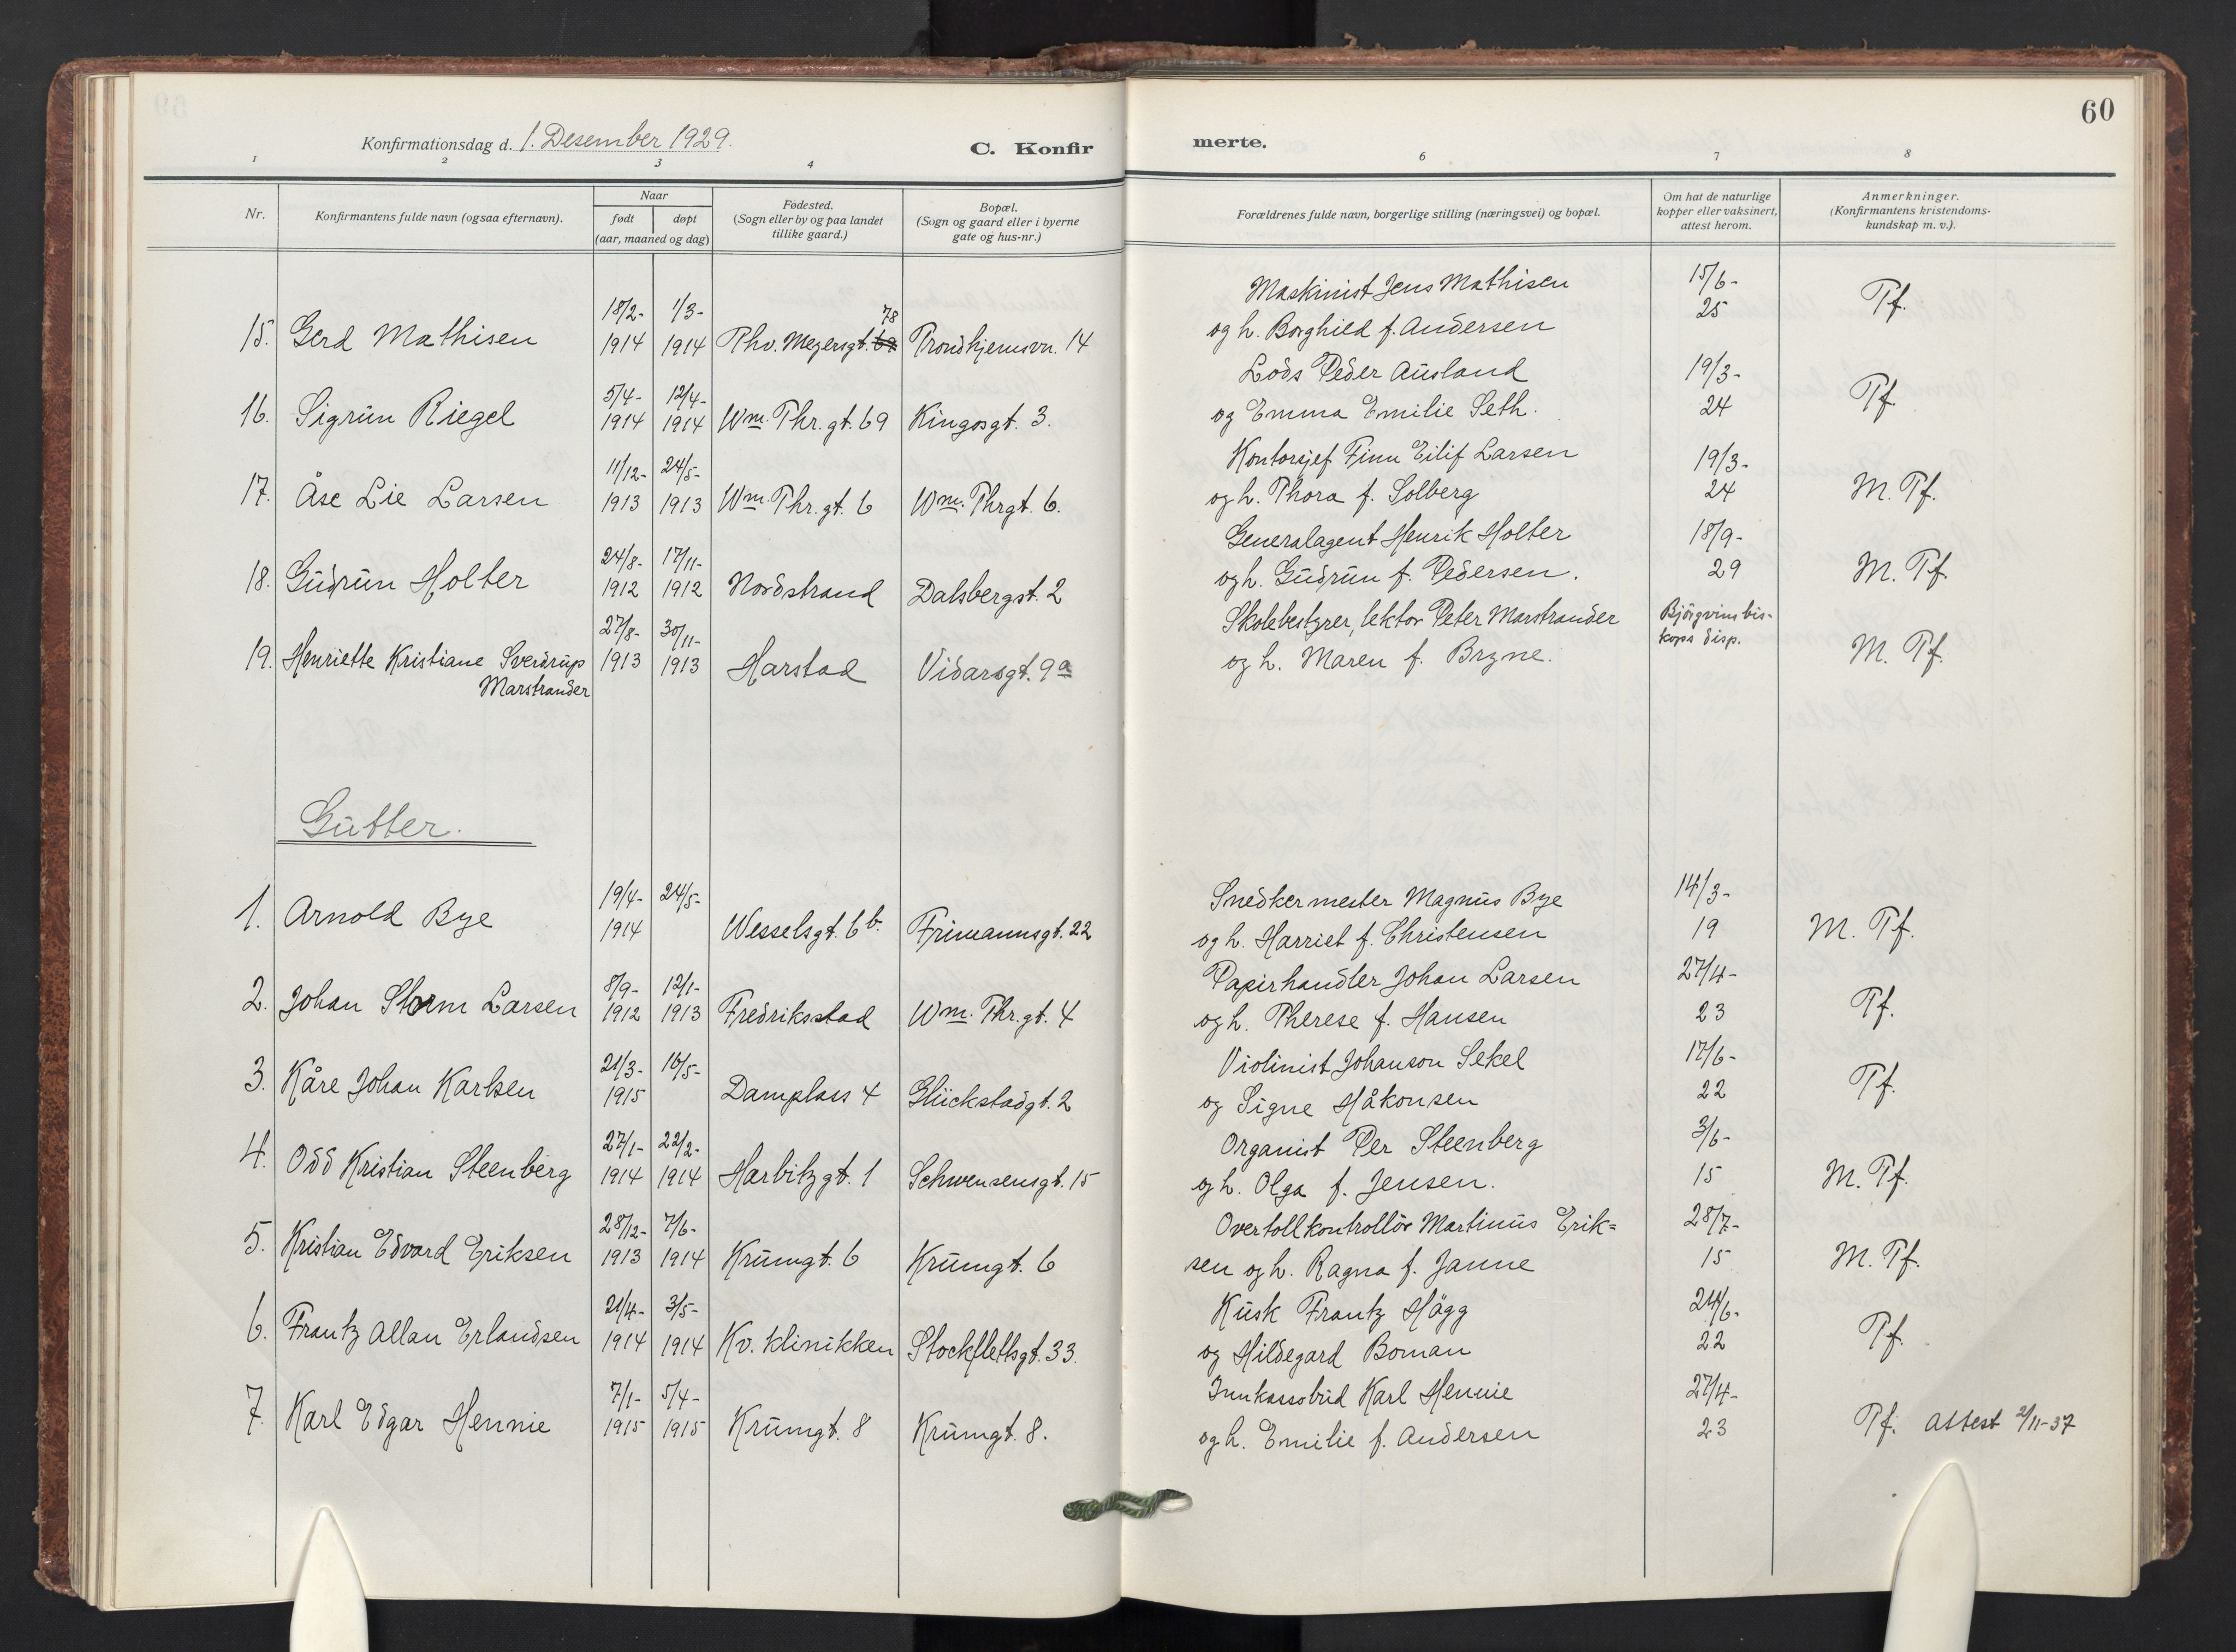 60
Konfirmationsdag d. 1. Desember 1929.
C. Konfir
merte.
1 2 3 4 6 7 8
Nr.
Konfirmantens fulde navn (ogsaa efternavn).
Naar
født døpt
(aar, maaned og dag)
Fødested.
(Sogn eller by og paa landet
tillike gaard.)
Bopæl.
(Sogn og gaard eller i byerne
gate og hus-nr.)
Forældrenes fulde navn, borgerlige stilling (næringsvei) og bopæl.
Om hat de naturlige
kopper eller vaksinert,
attest herom.
Anmerkninger.
(Konfirmantens kristendoms-
kundskap m. v.).
18/2- 1/3- 78 Maskinist Jens Mathisen 15/6-
15. Gerd Mathisen 1914 1914 Thv. Meyersgt. 69 Trondhjemsvn. 14 og h. Borghild f. Andersen 25 Tf.
5/4- 12/4- Lods Peder Ausland 19/3-
16. Sigrun Riegel 1914 1914 Wm. Thr. gt. 69 Kingosgt. 3. og Emma Emilie Seth. 24 Tf
11/12- 24/5- Kontorsjef Finn Eilif Larsen 19/3-
17. Åse Lie Larsen 1913 1913 Wm. Thr. gt. 6 Wm. Thrgt. 6. og h. Thora f. Solberg 24 M. Tf.
24/8- 17/11- Generalagent Henrik Holter 18/9-
18. Gudrun Holter 1912 1912 Nordstrand Dalsbergst. 2 og h. Gudrun f. Pedersen. 29 M. Tf.
27/8- 30/11- Skolebestyrer, lektor Peter Marstrander Bjørgvins bis-
19. Henriette Kristiane Sverdrup 1913 1913 Harstad Vidarsgt. 9a og h. Maren f. Bryne. kops disp. M. Tf.
Marstrander
Gutter.
19/4- 24/5- Snedkermester Magnus Bye 14/3-
1. Arnold Bye 1914 Wesselsgt. 6b. Frimannsgt. 22 og h. Harriet f. Christensen 19 M. Tf.
8/9- 12/1- Papirhandler Johan Larsen 27/4-
2. Johan Storm Larsen 1912 1913 Fredriksstad Wm. Thr. gt. 4 og h. Therese f. Hansen 23 Tf.
21/3- 16/5- Violinist Johanson Sekel 17/6-
3. Kåre Johan Karlsen 1915 Damplass 4 Glückstadgt. 2 og Signe Håkonsen 22 Tf.
27/1- 22/2- Organist Per Steenberg 3/6-
4. Odd Kristian Steenberg 1914 1914 Harbitzgt. 1 Schwensensgt. 15 og h. Olga f. Jensen. 15 M. Tf.
28/12- 7/6- Overtollkontrollør Martinus Erik= 28/7-
5. Kristian Edvard Eriksen 1913 1914 Krumgt. 6 Krumgt. 6 sen og h. Ragna f. Janne 15 M. Tf.
21/4- 3/5- Kusk Frantz Hägg 24/6-
6. Frantz Allan Erlandsen 1914 1914 Kv. klinikken Stockflethsgt. 33. og Hildegard Boman 22 Tf.
7/1- 5/4- Innkassobud Karl Hennie 27/4-
7. Karl Edgar Hennie 1915 1915 Krumgt. 8 Krumgt. 8. og h. Emilie f. Andersen 23 Tf. Attest 2/11-37